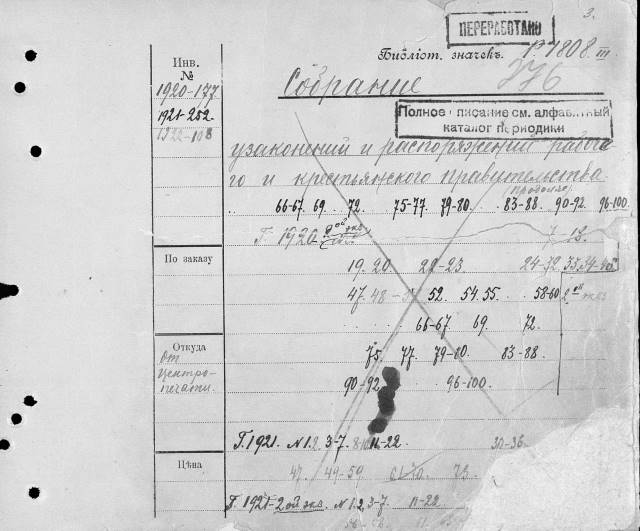 3.
ПЕРЕРАБОТАНО
Библіот. значекъ. Р. 1808. III
276
Собрание
Полное описание см. алфавитный
каталог периодики
узаконений и распоряжений рабоче-
го и крестьянского правительства.
66-67. 69. 72. 75-77. 79-80. 83-88. 90-92. 96-100.
Г. 1920. 2ой экз. 7 13.
19. 20. 22-23 24-32. 33.34-
47. 48- 52. 54. 55. 58-60 2ой экз
66-67 69. 72.
75. 77. 79-80. 83-88.
90-92. 96-100.
Г. 1921. N 1.2. 3-7. 11-22 30-36.
47. 49-59 73.
Г. 1921-2ой экз. N 1.2. 3-7. 11-22
Инв.
№
1920-177
1921-252
1922-108
По заказу
Откуда
от
Центро-
печати.
Цѣна